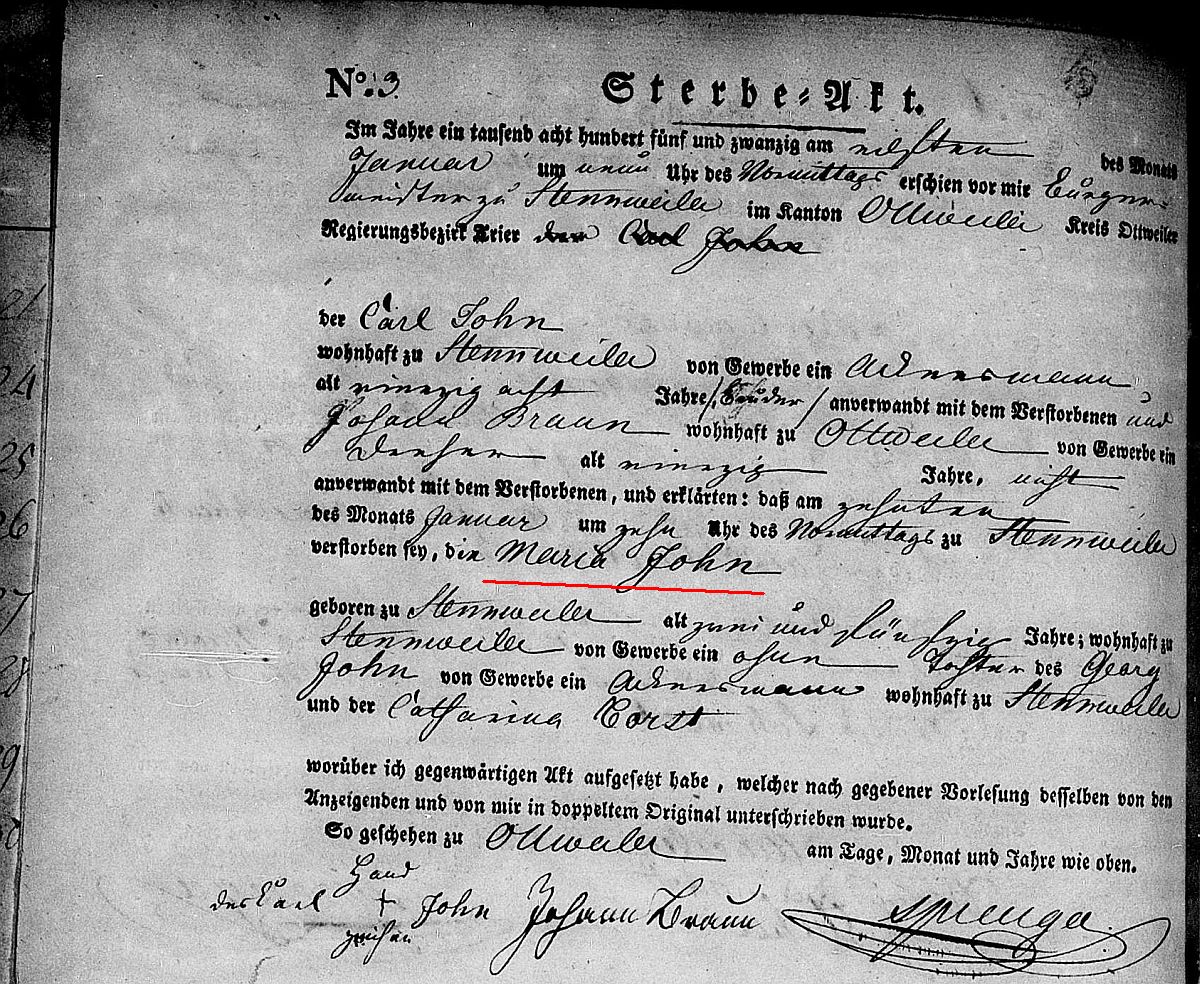 No. 3.
Sterbe-Akt.
Im Jahre ein tausend acht hundert fünf und zwanzig am eilften des Monats
Januar um neun Uhr des Vormittags erschien vor mir Bürger-
meister zu Stennweiler im Kanton Ottweiler Kreis Ottweiler
Regierungsbezirk Trier der Carl John
der Carl John
wohnhaft zu Stennweiler von Gewerbe ein Ackersmann
alt vierzig acht Jahre / Bruder / anverwandt mit dem Verstorbenen und
Johann Braun wohnhaft zu Ottweiler von Gewerbe ein
Dreher alt vierzig Jahre, nicht
anverwandt mit dem Verstorbenen, und erklärten: daß am zehnten
des Monats Januar um zehn Uhr des Vormittags zu Stennweiler
verstorben sey, die Maria John
geboren zu Stennweiler alt zwei und fünfzig Jahre; wohnhaft zu
Stennweiler von Gewerbe ein ohne Tochter des Georg
John von Gewerbe ein Ackersmann wohnhaft zu Stennweiler
und der Catharina Horst
worüber ich gegenwärtigen Akt aufgesetzt habe, welcher nach gegebener Vorlesung desselben von den
Anzeigenden und von mir in doppeltem Original unterschrieben wurde.
So geschehen zu Ottweiler am Tage, Monat und Jahre wie oben.
Hand
des Carl + John Johann Braun
zeichen
21
24
25
26
27
28